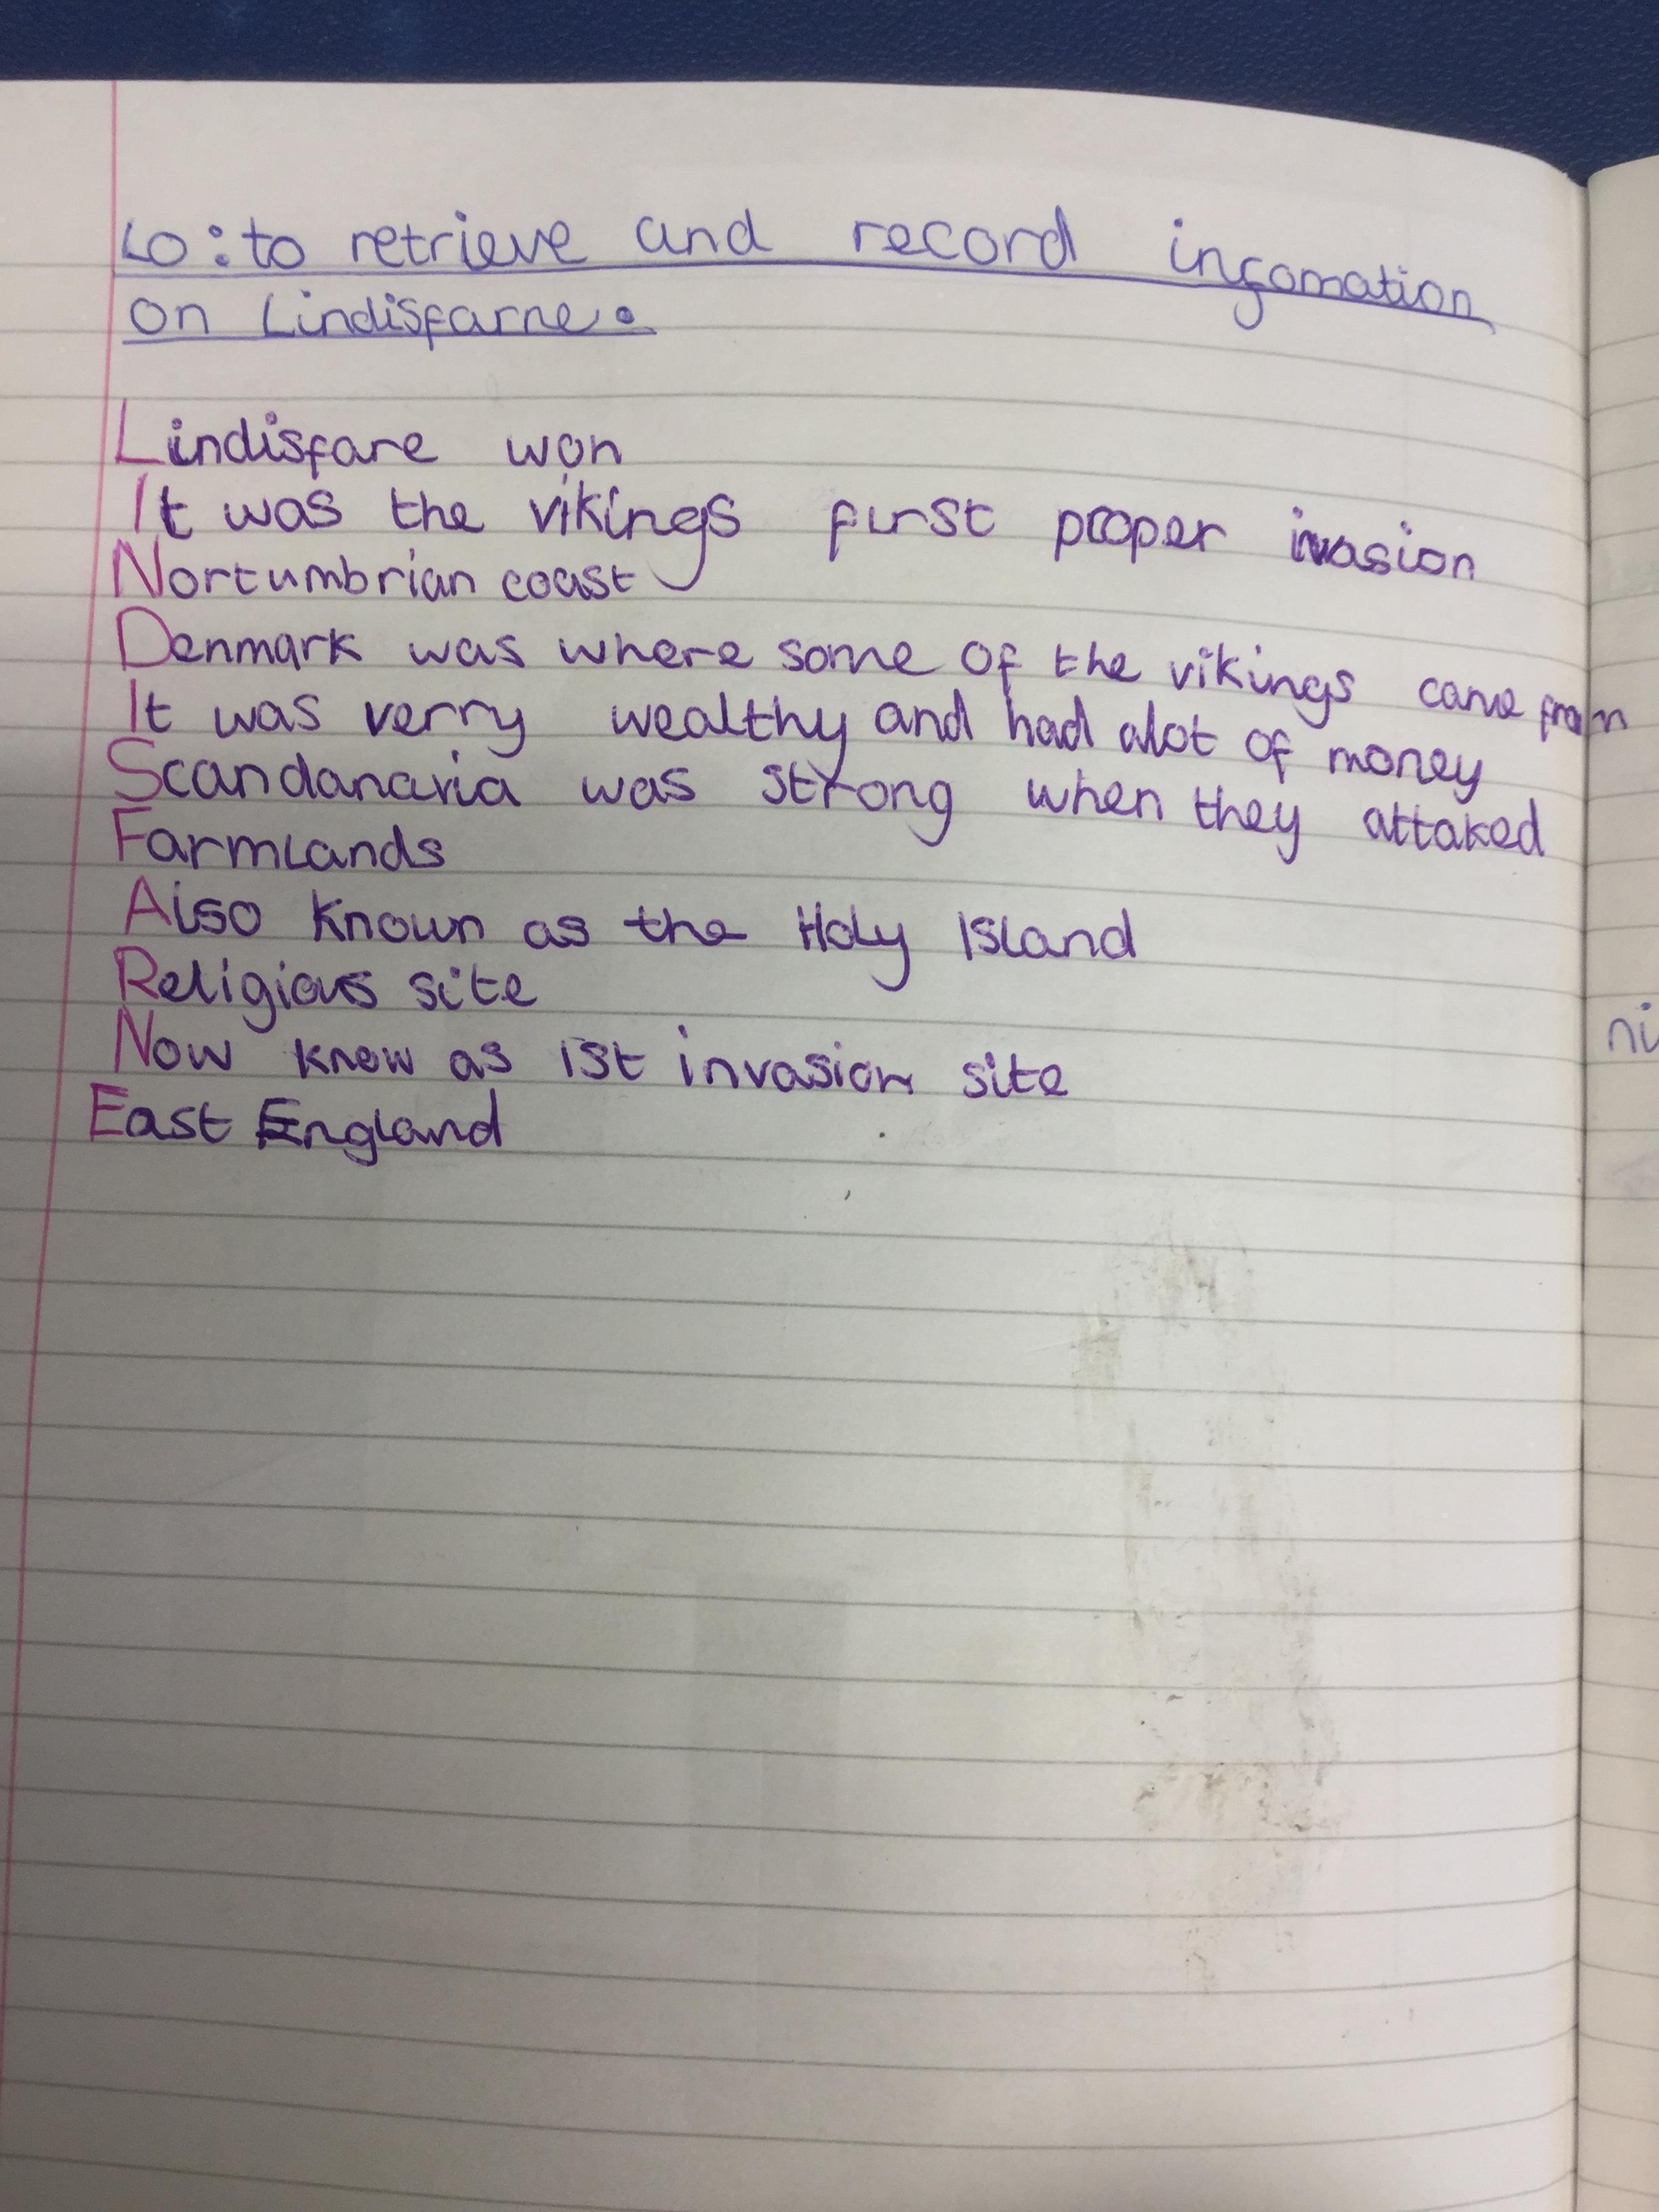 LO: to retrieve and record infomation
on Lindisfarne.
Lindisfare won
It was the vikings first proper invasion
Nortumbrian coast
Denmark was where some of the vikings came from
It was verry wealthy and had alot of money
Scandanavia was strong when they attaked
Farmlands
Also known as the Holy Island
Religious site
Now know as 1st invasion site
East England
ni